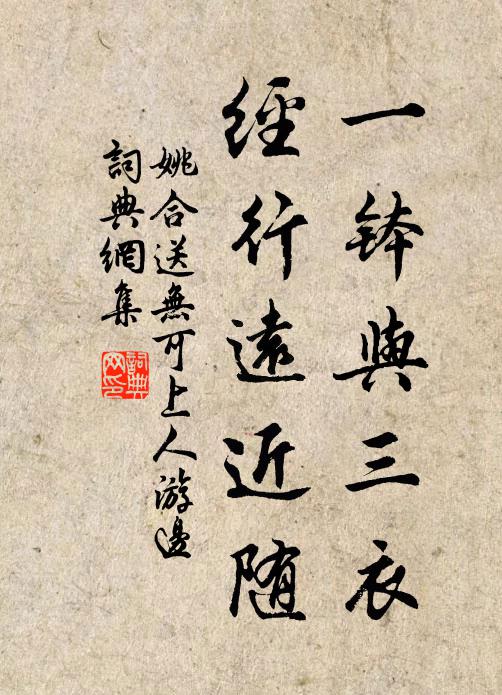 一鉢與三衣
經行遠近随
姚合送無可上人游邊
詞典網集
詞典网印